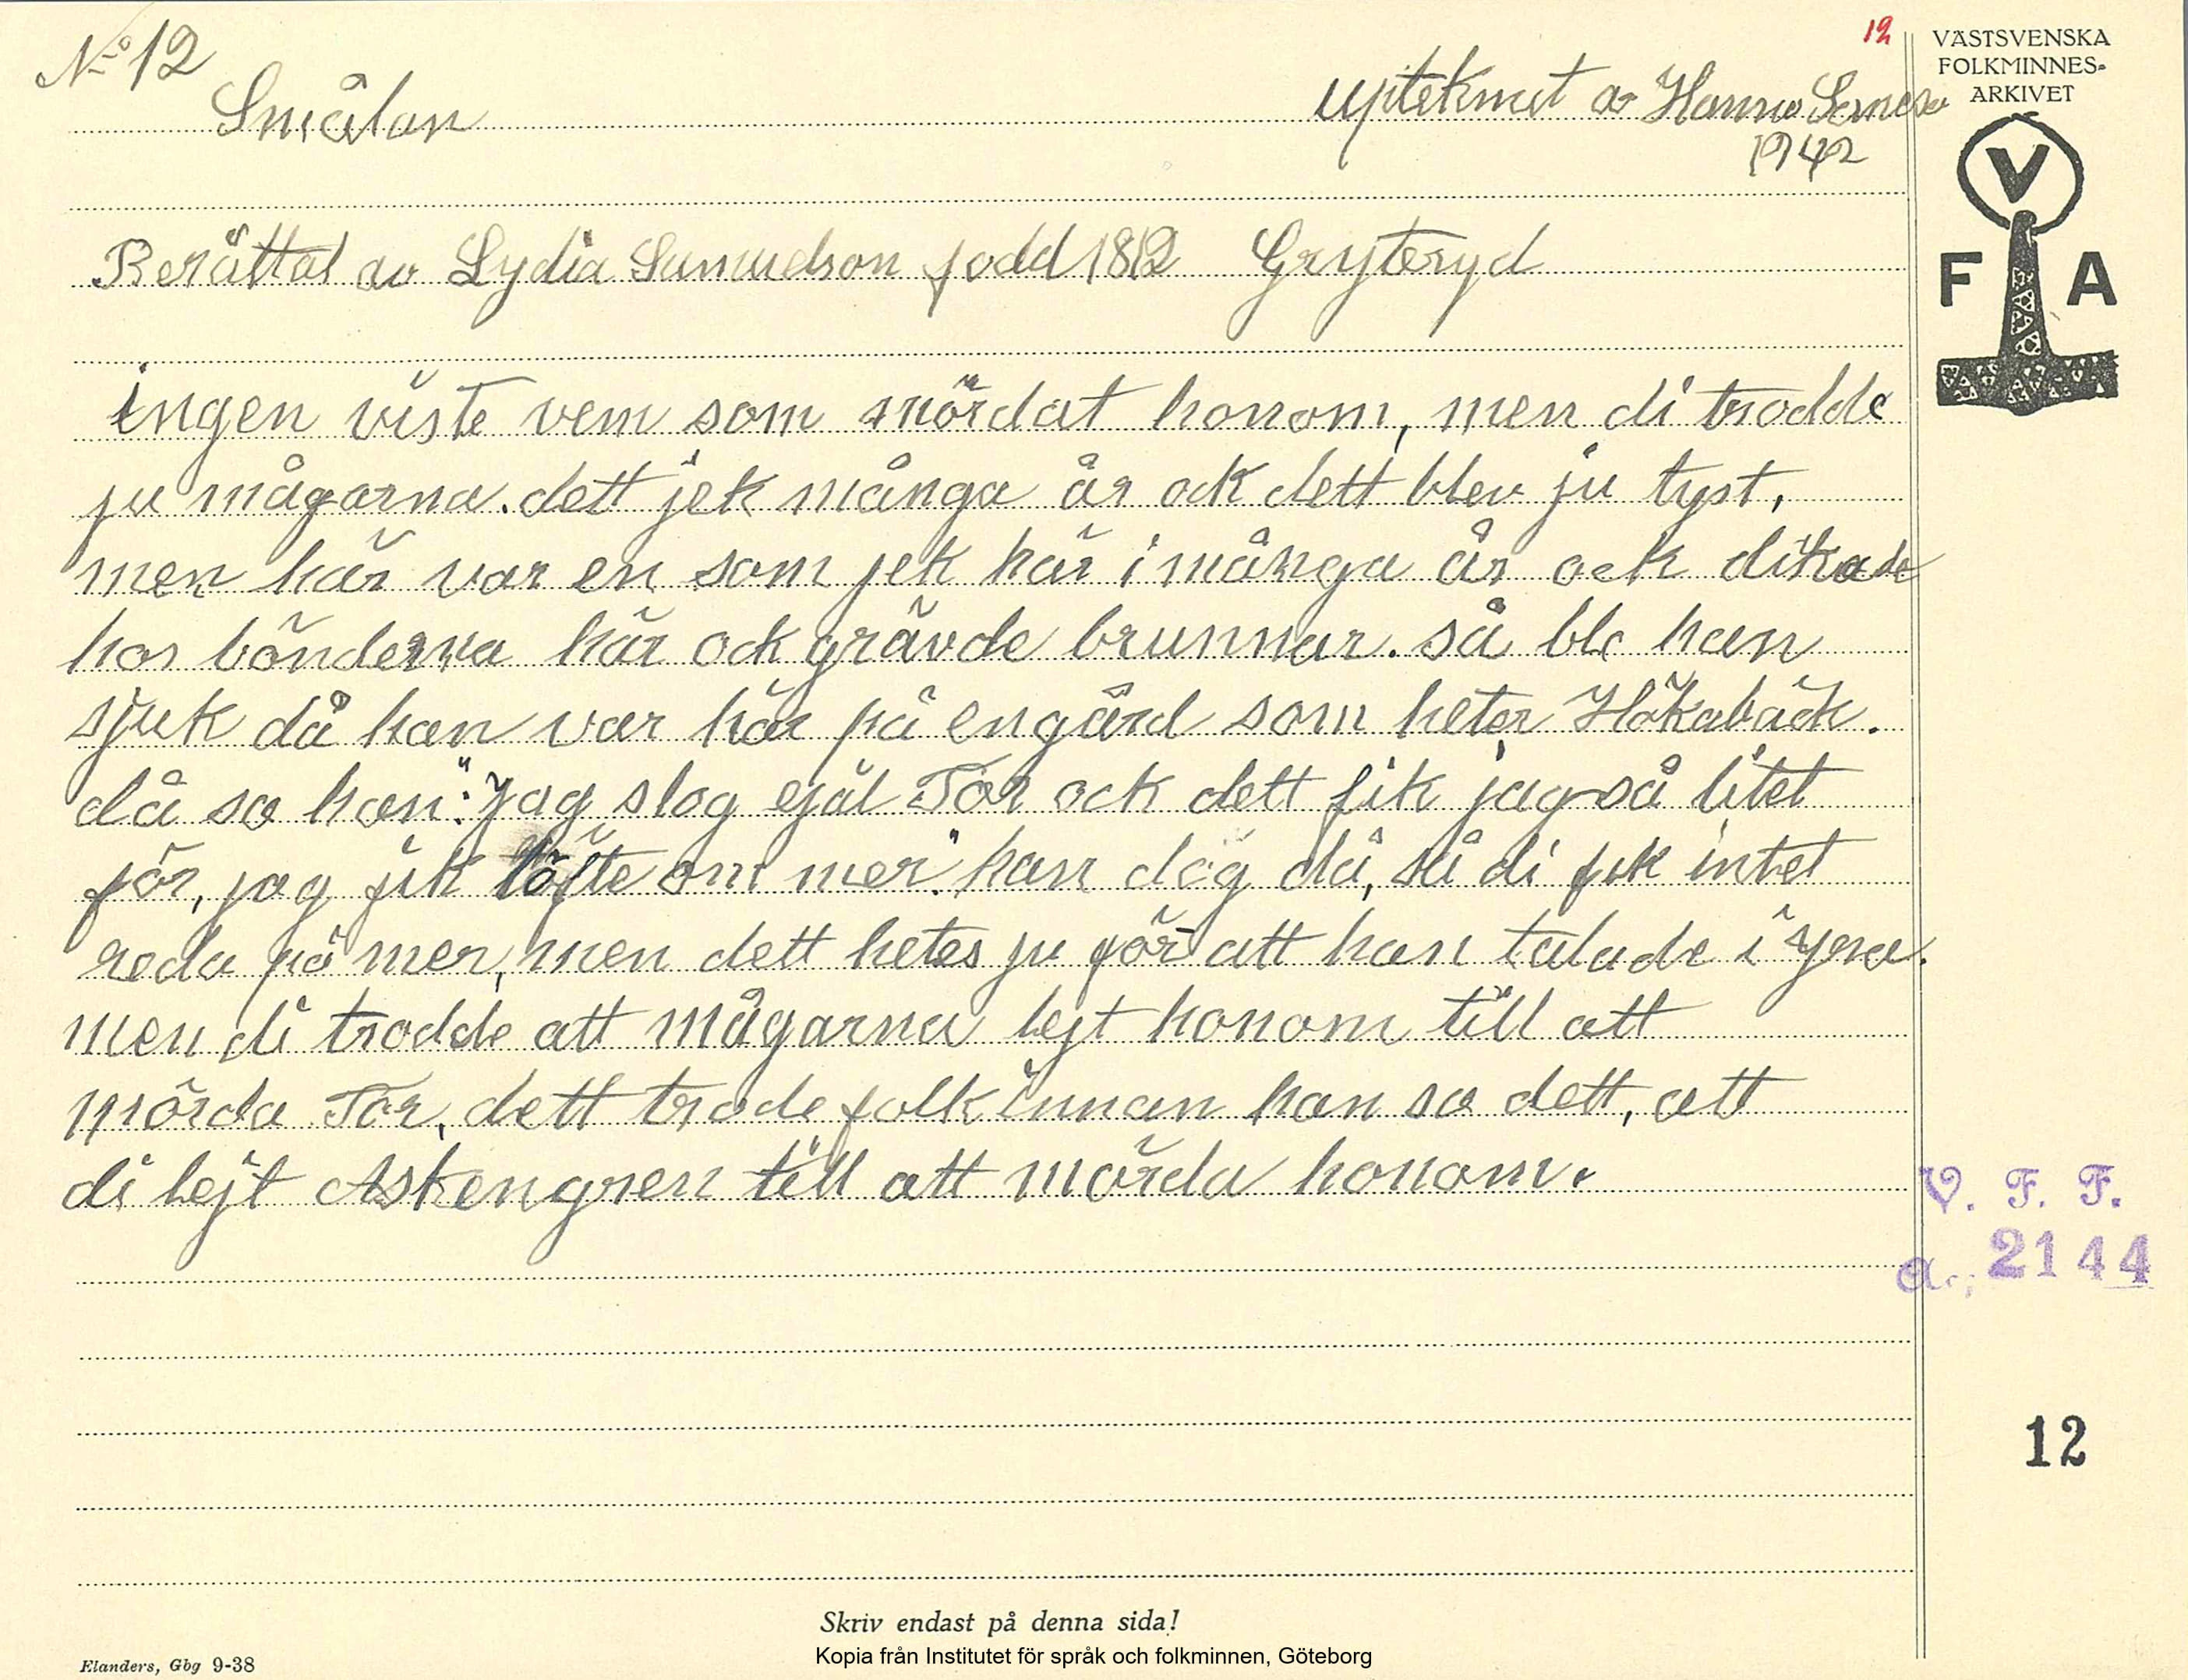 No 12
12
VÄSTSVENSKA
FOLKMINNES-
ARKIVET
Småland
Upteknet av Hanna
1942
V
F A
Berättat av Lydia Samuelson född 1812 Gryteryd
ingen viste vem som mördat honom, men di trodde
ju mågarna. dett jek många år ock dett blev ju tyst,
men här var en som jek här i många år ock dikade
hos bönderna här ock grävde brunnar. så ble han
sjuk då han var här på en gård som heter Hökabäck.
då sa han: "Jag slog ejäl Tor ock dett fik jag så litet
för, jag fik löfte om mer." han dög då, så di fik intet
reda på mer, men dett hetes ju för att han talade i yra.
men di trodde att mågarna lejt honom till att
mörda Tor, dett trode folk innan han sa dett, att
di lejt Askengren till att mörda honom.
V. F. F.
a., 2144
12
Skriv endast på denna sida!
Kopia från Institutet för språk och folkminnen, Göteborg
Elanders, Gbg 9-38